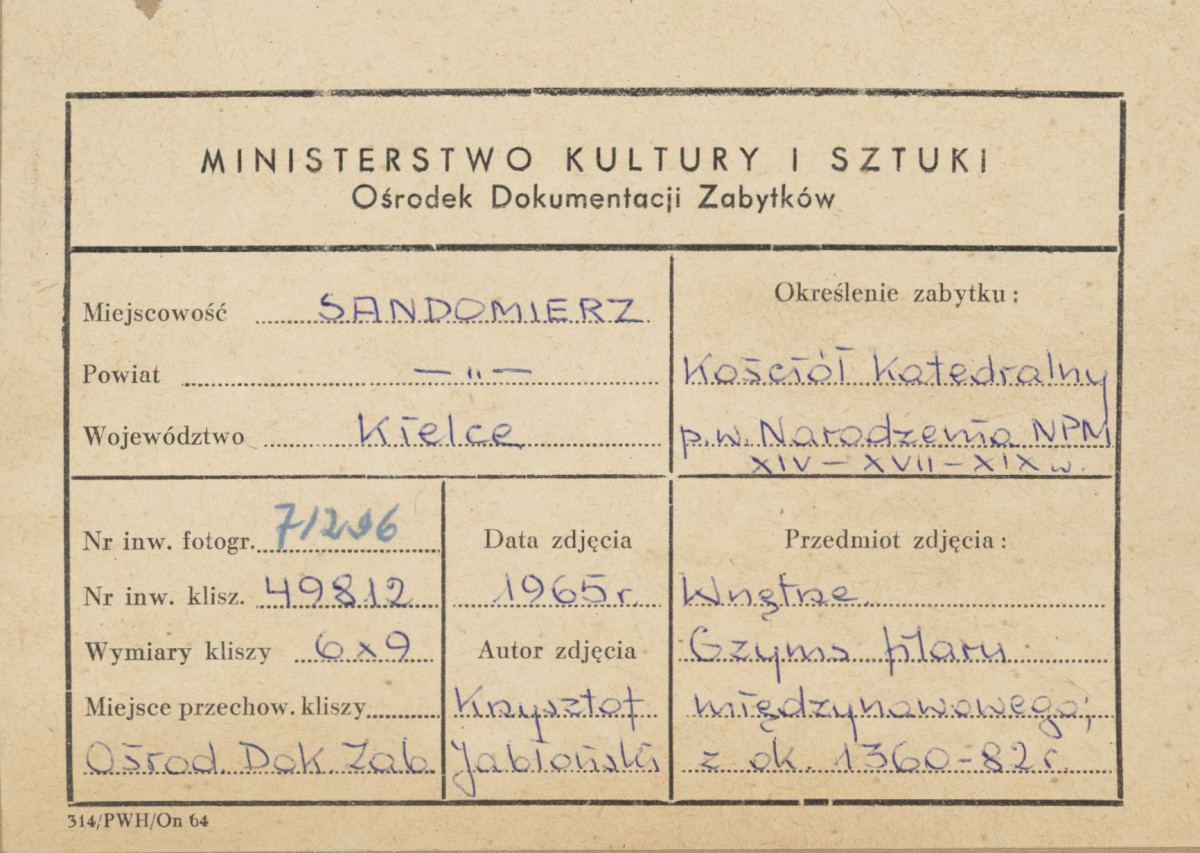 MINISTERSTWO KULTURY I SZTUKI
Ośrodek Dokumentacji Zabytków
Miejscowość SANDOMIERZ
Powiat — „ —
Województwo Kielce
Określenie zabytku:
Kościół Katedralny
p.w. Narodzenia NPM
XIV – XVII – XIX w.
Nr inw. fotogr. 71296
Nr inw. klisz. 49812
Wymiary kliszy 6x9
Miejsce przechow. kliszy
Ośrod. Dok. Zab.
Data zdjęcia
1965 r.
Autor zdjęcia
Krzysztof
Jabłoński
Przedmiot zdjęcia:
Wnętrze.
Gzyms filaru
międzynawowego;
z ok. 1360-82 r.
314/PWH/On 64